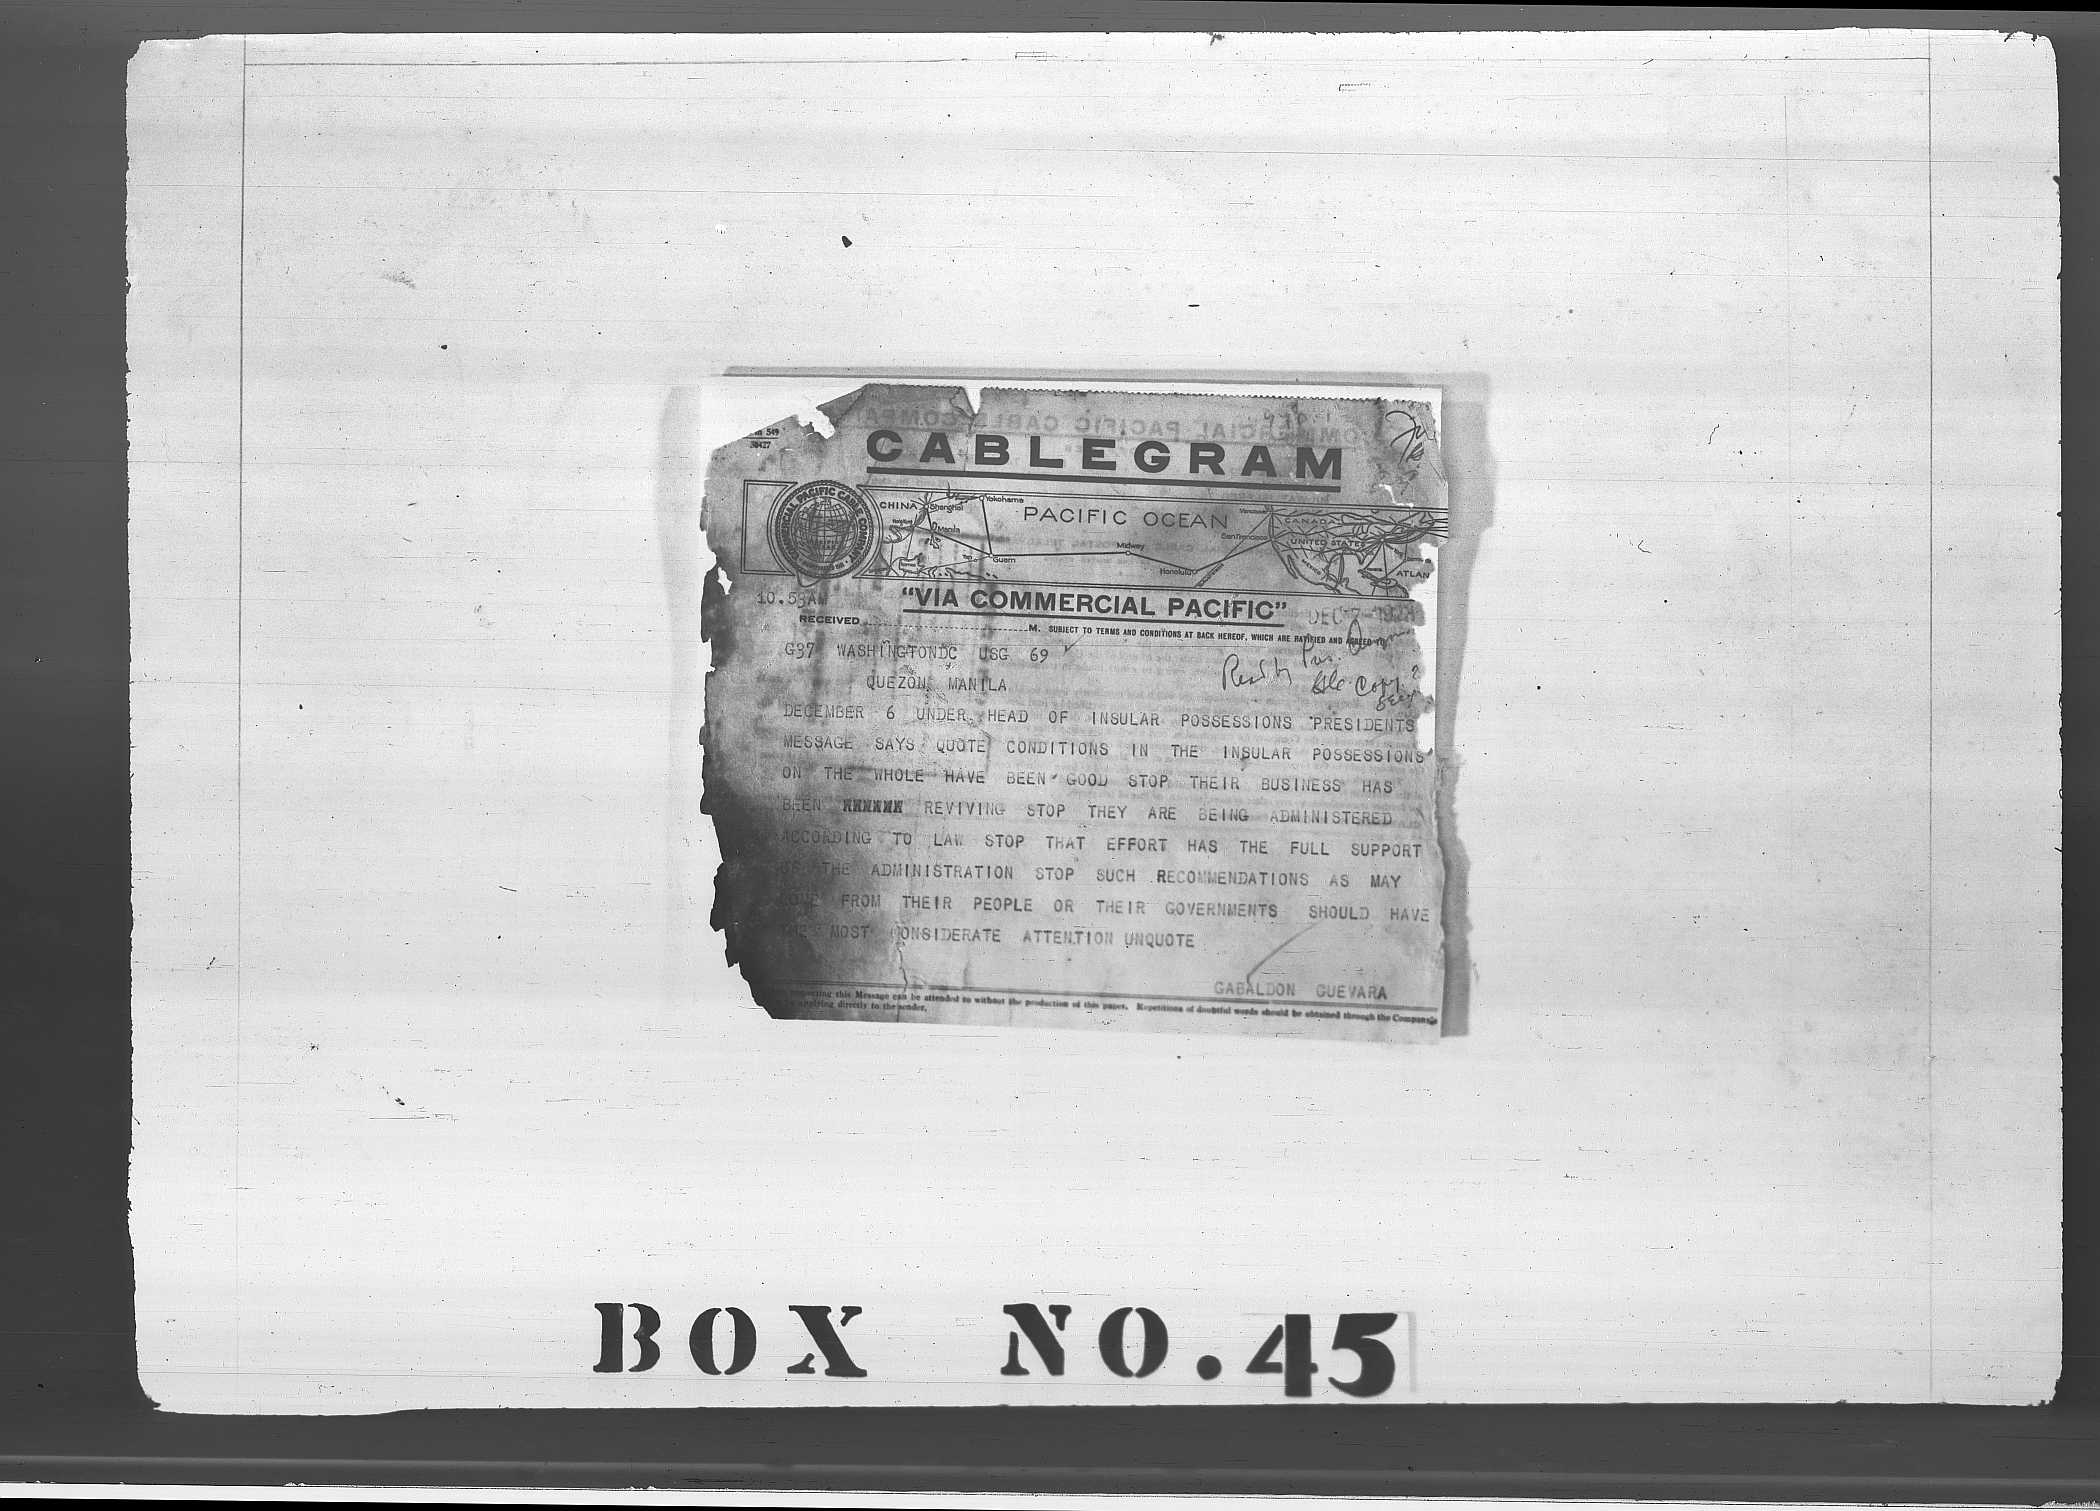 549
30427
CABLEGRAM
COMMERCIAL PACIFIC CABLE COMPANY
CHINA
Yokohama
Shanghai
Manila
Guam
PACIFIC OCEAN
Midway
Honolulu
San Francisco
CANADA
UNITED STATES
MEXICO
ATLAN
10.53AM
"VIA COMMERCIAL PACIFIC"
DEC 7-
RECEIVED M. SUBJECT TO TERMS AND CONDITIONS AT BACK HEREOF, WHICH ARE RATIFIED AND AGREED TO
G37 WASHINGTONDC USG 69
Read by
copy
QUEZON MANILA
DECEMBER 6 UNDER HEAD OF INSULAR POSSESSIONS PRESIDENTS
MESSAGE SAYS QUOTE CONDITIONS IN THE INSULAR POSSESSIONS
ON THE WHOLE HAVE BEEN GOOD STOP THEIR BUSINESS HAS
BEEN REVIVING STOP THEY ARE BEING ADMINISTERED
ACCORDING TO LAW STOP THAT EFFORT HAS THE FULL SUPPORT
OF THE ADMINISTRATION STOP SUCH RECOMMENDATIONS AS MAY
COME FROM THEIR PEOPLE OR THEIR GOVERNMENTS SHOULD HAVE
THE MOST CONSIDERATE ATTENTION UNQUOTE
GABALDON GUEVARA
this Message can be attended to without the production of this paper. Repetitions of doubtful words should be obtained through the Company's
applying directly to the sender.
BOX NO.45